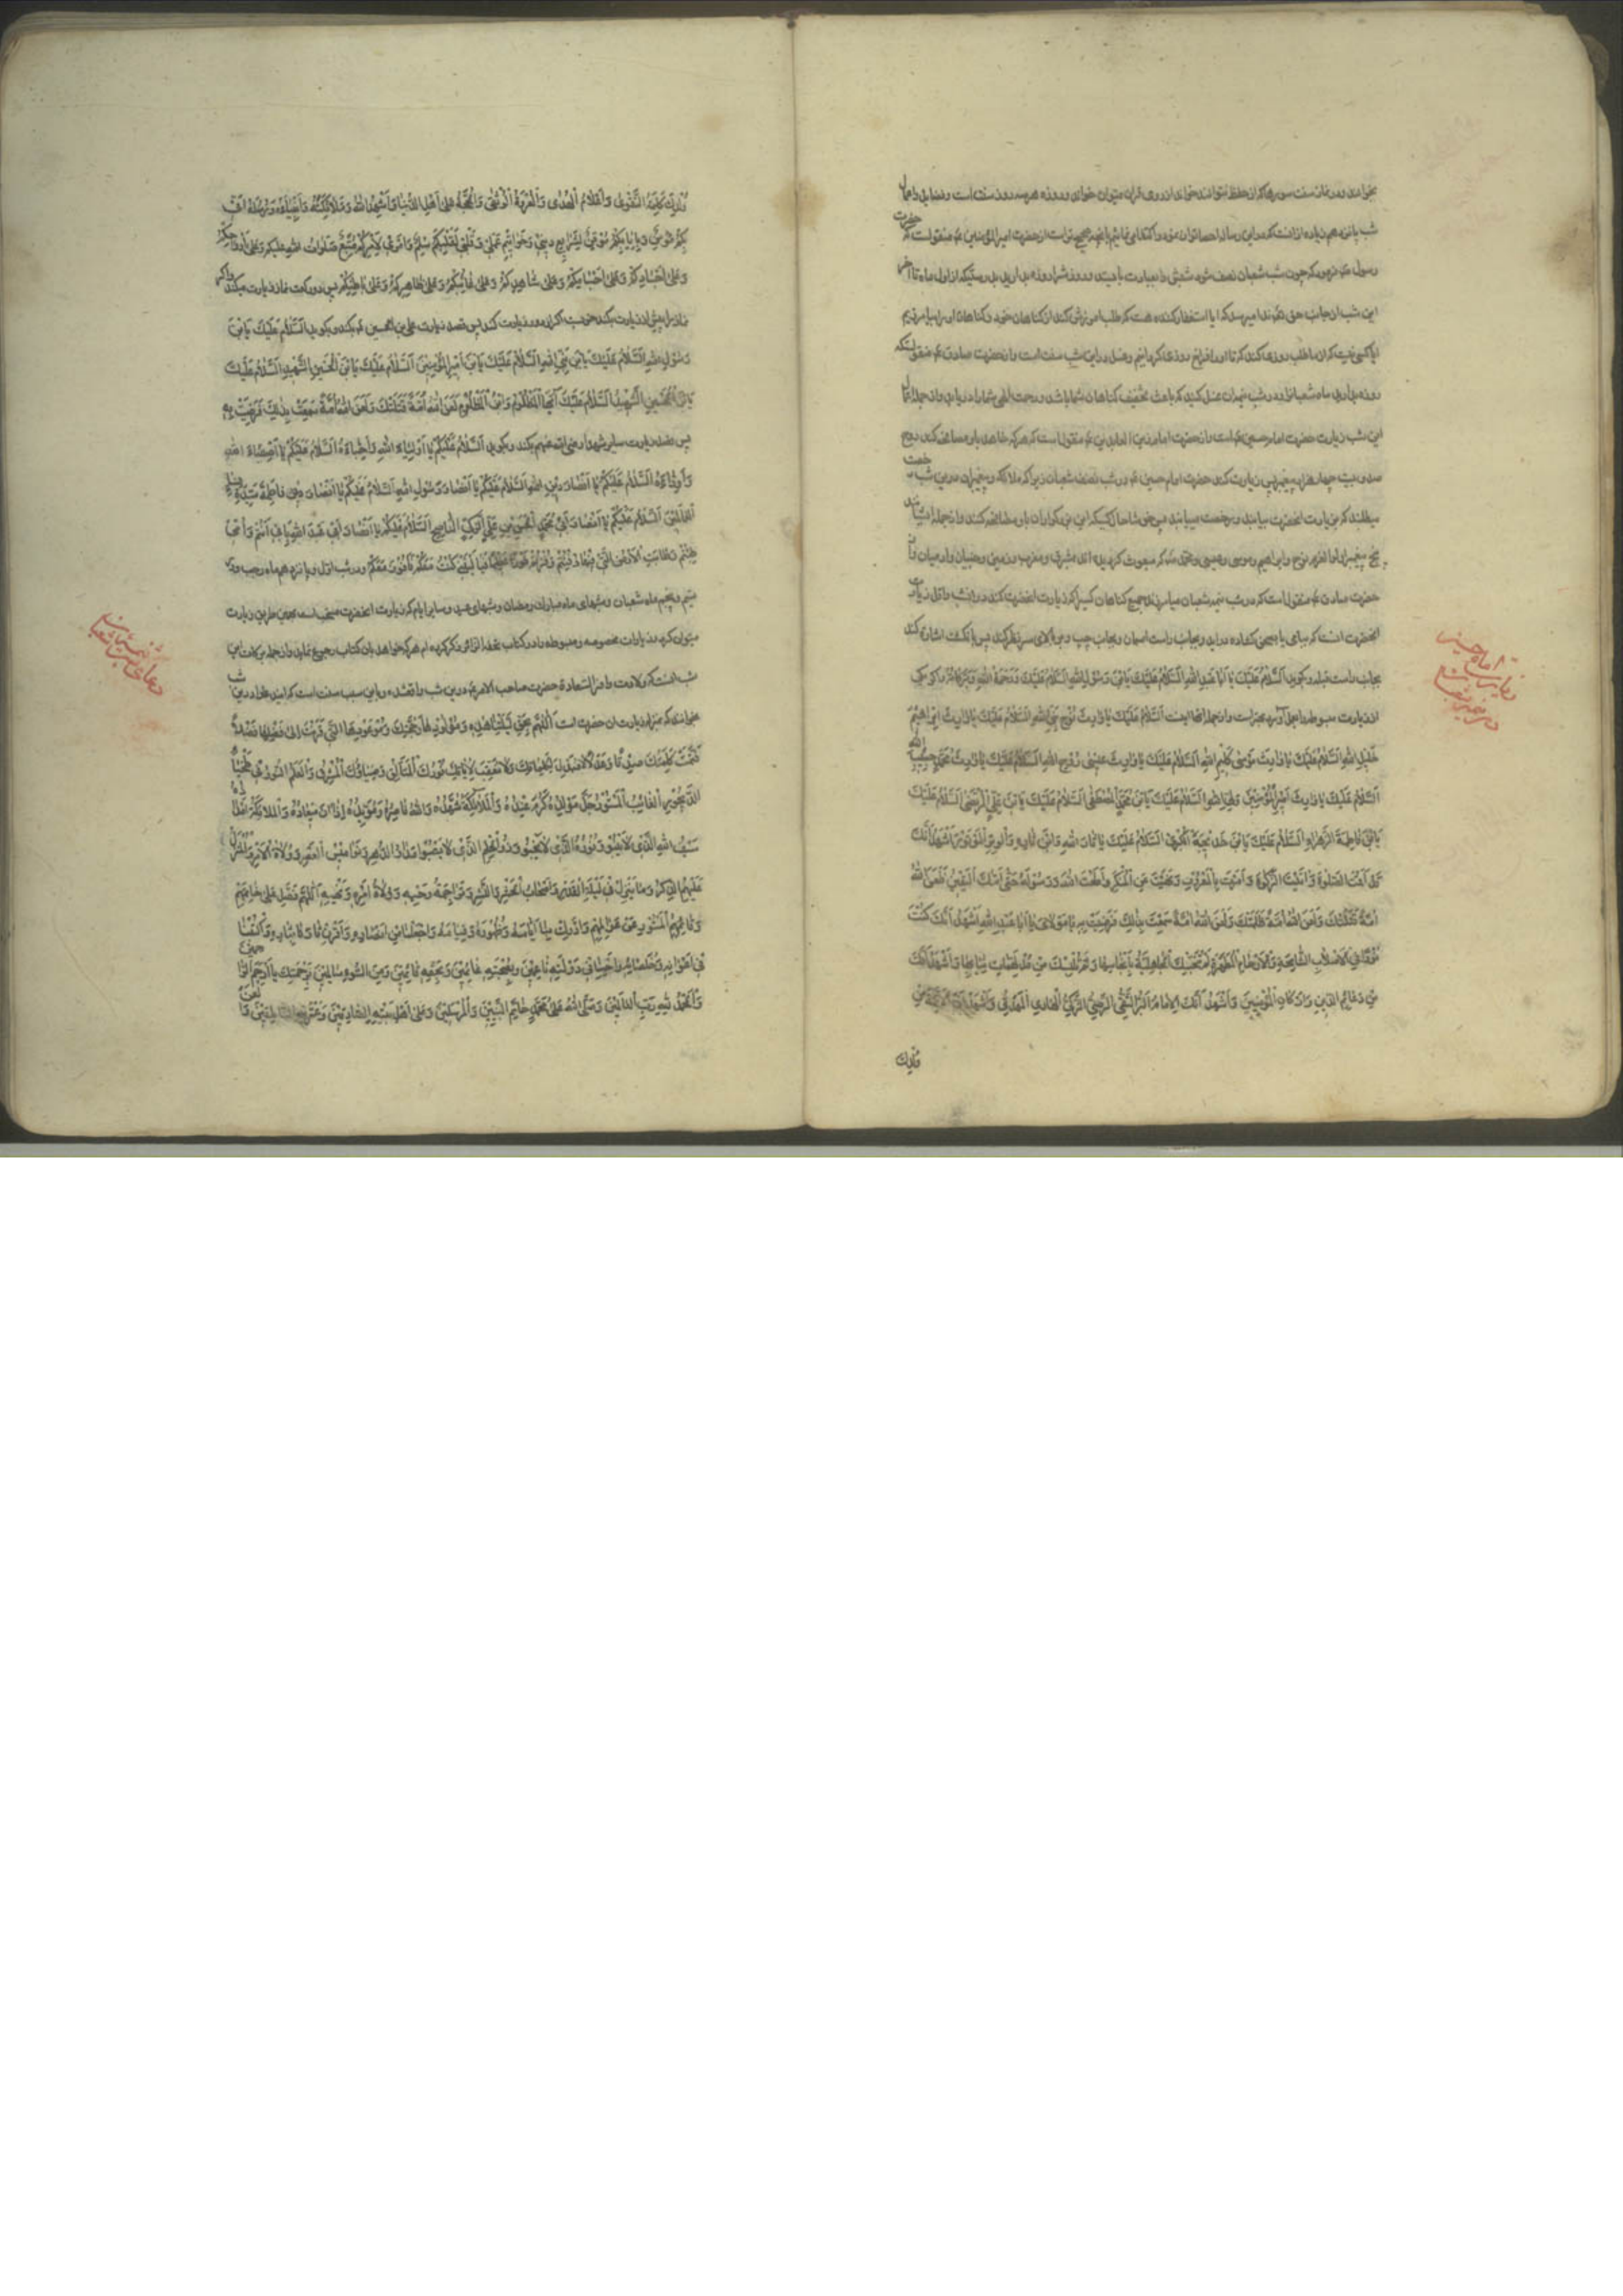 بخوانند و در نماز سنت سورها که از حفظ نتوانند خواند از روی قران میتوان خواند و روزه هر سه روز سنت است و فضایل و اعمال
شب پانزدهم زیاده از انست که در این رساله احصا توان نمود و اکتفا می نمائیم بانچه صحیح تر است از حضرت امیر المؤمنین ع منقولست که حضرت
رسول ص فرمود که چون شب شعبان نصف شود شبش را بعبادت بایستید و روزش را روزه بدارید بدرستیکه از اول ماه تا آخر
این شب از جانب حق تع ندا میرسد که ایا استغفار کننده هست که طلب امرزش کند از گناهان خود و گناهان او را بیامرزیم
ایا کسی هست که از ما طلب روزی کند که تا او را فراخ روزی گردانیم و غسل در این شب سنت است و از حضرت صادق ع منقولستکه
روزه بدارید ماه شعبان را و در شب نیمه ان غسل کنید که باعث تخفیف گناهان شما باشد و رحمت الهی شما را دریابد و از جمله اعمال
این شب زیارت حضرت امام حسین ع است و از حضرت امام زین العابدین ع منقول است که هر که خواهد با او مصافحه کند روح
صد و بیست چهار هزار پیغمبر پس زیارت کند حضرت امام حسین ع در شب نصف شعبان زیرا که ملائکه و پیغمبران در این شب رخصت
میطلبند که بزیارت انحضرت بیایند و رخصت مییابند پس خوشا حال کسیکه این بزرگواران با او مصافحه کنند و از جمله ایشانند
پنج پیغمبر اولوا العزم نوح و ابراهیم و موسی و عیسی و محمد ص که مبعوث گردیده اند بمشرق و مغرب و زمین و جنیان و ادمیان و از
حضرت صادق ع منقول است که در شب نیمه شعبان میامرزد خدا جمیع گناهان کسی را که زیارت انحضرت کند در انشب و اقل زیارت
انحضرت انست که ببامی یا بصحن گشاده در اید و بجانب راست اسمان و بجانب چپ و پس ببالای سر نظر کند پس با نگشت اشاره کند
بجانب راست قبله و بگوید اَلسَّلامُ عَلَیْكَ یا اَبا عَبْدِ اللهِ اَلسَّلامُ عَلَیْكَ یَابْنَ رَسُولِ اللهِ اَلسَّلامُ عَلَیْكَ وَرَحْمَةُ اللهِ وَبَرَکاتُهُ
اَلسَّلامُ عَلَیْكَ یا وارِثَ نُوحٍ نَبِیِّ اللهِ اَلسَّلامُ عَلَیْكَ یا وارِثَ اِبْراهیمَ
خَلیلِ اللهِ اَلسَّلامُ عَلَیْكَ یا وارِثَ مُوسٰی کَلیمِ اللهِ اَلسَّلامُ عَلَیْكَ یا وارِثَ عیسٰی رُوحِ اللهِ اَلسَّلامُ عَلَیْكَ یا وارِثَ مُحَمَّدٍ حَبیبِ الله
اَلسَّلامُ عَلَیْكَ یا وارِثَ اَمیرِ الْمُؤْمِنینَ وَلِیِّ اللهِ اَلسَّلامُ عَلَیْكَ یَابْنَ مُحَمَّدٍ الْمُصْطَفٰی اَلسَّلامُ عَلَیْكَ یَابْنَ عَلِیٍّ الْمُرْتَضٰی اَلسَّلامُ عَلَیْكَ
یَابْنَ فاطِمَةَ الزَّهْراءِ اَلسَّلامُ عَلَیْكَ یَابْنَ خَدیجَةَ الْکُبْرٰی اَلسَّلامُ عَلَیْكَ یا ثارَ اللهِ وَابْنَ ثارِهِ وَالْوِتْرَ الْمَوْتُورَ اَشْهَدُ اَنَّكَ
قَدْ اَقَمْتَ الصَّلوةَ وَاٰتَیْتَ الزَّکٰوةَ وَاَمَرْتَ بِالْمَعْرُوفِ وَنَهَیْتَ عَنِ الْمُنْکَرِ وَاَطَعْتَ اللهَ وَرَسُولَهُ حَتّٰی اَتٰیكَ الْیَقینُ فَلَعَنَ اللهُ
اُمَّةً قَتَلَتْكَ وَلَعَنَ اللهُ اُمَّةً ظَلَمَتْكَ وَلَعَنَ اللهُ اُمَّةً سَمِعَتْ بِذٰلِكَ فَرَضِیَتْ بِهِ یا مَوْلایَ یا اَبا عَبْدِ اللهِ اَشْهَدُ اَنَّكَ کُنْتَ
نُورًا فِی الْاَصْلابِ الشّامِخَةِ وَالْاَرْحامِ الْمُطَهَّرَةِ لَمْ تُنَجِّسْكَ الْجاهِلِیَّةُ بِاَنْجاسِها وَلَمْ تُلْبِسْكَ مِنْ مُدْلَهِمّاتِ ثِیابِها وَاَشْهَدُ اَنَّكَ
مِنْ دَعائِمِ الدّینِ وَاَرْکانِ الْمُؤْمِنینَ وَاَشْهَدُ اَنَّكَ الْاِمامُ الْبَرُّ التَّقِیُّ الرَّضِیُّ الزَّکِیُّ الْهادِی الْمَهْدِیُّ وَاَشْهَدُ اَنَّ الْاَئِمَّةَ مِنْ
وُلْدِكَ
زیارت امام حسین
در نیمه شعبان
وُلْدِكَ کَلِمَةُ التَّقْوٰی وَاَعْلامُ الْهُدٰی وَالْعُرْوَةُ الْوُثْقٰی وَالْحُجَّةُ عَلٰی اَهْلِ الدُّنْیا وَاُشْهِدُ اللهَ وَمَلائِکَتَهُ وَاَنْبِیاءَهُ وَرُسُلَهُ اَنّی
بِکُمْ مُؤْمِنٌ وَبِاِیابِکُمْ مُوقِنٌ بِشَرایِعِ دینی وَخَواتیمِ عَمَلی وَقَلْبی لِقَلْبِکُمْ سِلْمٌ وَاَمْری لِاَمْرِکُمْ مُتَّبِعٌ صَلَواتُ اللهِ عَلَیْکُمْ وَعَلٰی اَرْواحِکُمْ
وَعَلٰی اَجْسادِکُمْ وَعَلٰی اَجْسامِکُمْ وَعَلٰی شاهِدِکُمْ وَعَلٰی غائِبِکُمْ وَعَلٰی ظاهِرِکُمْ وَعَلٰی باطِنِکُمْ پس دو رکعت نماز زیارت میکند و اگر
نماز را پیش از زیارت بکند خوبست پس قصد زیارت علی بن الحسین ع بکند و بگوید اَلسَّلامُ عَلَیْكَ یَابْنَ
رَسُولِ اللهِ اَلسَّلامُ عَلَیْكَ یَابْنَ نَبِیِّ اللهِ اَلسَّلامُ عَلَیْكَ یَابْنَ اَمیرِ الْمُؤْمِنینَ اَلسَّلامُ عَلَیْكَ یَابْنَ الْحُسَیْنِ الشَّهیدِ اَلسَّلامُ عَلَیْكَ
اَلسَّلامُ عَلَیْكَ اَیُّهَا الْمَظْلُومُ وَابْنُ الْمَظْلُومِ لَعَنَ اللهُ اُمَّةً قَتَلَتْكَ وَلَعَنَ اللهُ اُمَّةً سَمِعَتْ بِذٰلِكَ فَرَضِیَتْ بِهِ
پس قصد زیارت سایر شهدا رضی الله عنهم بکند و بگوید اَلسَّلامُ عَلَیْکُمْ یا اَوْلِیاءَ اللهِ وَاَحِبّاءَهُ اَلسَّلامُ عَلَیْکُمْ یا اَصْفِیاءَ اللهِ
وَاَوِدّاءَهُ اَلسَّلامُ عَلَیْکُمْ یا اَنْصارَ دینِ اللهِ اَلسَّلامُ عَلَیْکُمْ یا اَنْصارَ رَسُولِ اللهِ اَلسَّلامُ عَلَیْکُمْ یا اَنْصارَ فاطِمَةَ سَیِّدَةِ نِساءِ
الْعالَمینَ اَلسَّلامُ عَلَیْکُمْ یا اَنْصارَ اَبی مُحَمَّدٍ الْحَسَنِ بْنِ عَلِیٍّ الزَّکِیِّ النّاصِحِ اَلسَّلامُ عَلَیْکُمْ یا اَنْصارَ اَبی عَبْدِ اللهِ بِاَبی اَنْتُمْ وَاُمّی
طِبْتُمْ وَطابَتِ الْاَرْضُ الَّتی فیها دُفِنْتُمْ وَفُزْتُمْ فَوْزًا عَظیمًا فَیا لَیْتَنی کُنْتُ مَعَکُمْ فَاَفُوزَ مَعَکُمْ و در شب اول و پانزدهم ماه رجب و در
سیم و پنجم ماه شعبان و شبهای ماه مبارك رمضان و شبهای عید و سایر ایام که زیارت انحضرت مستحب است بهمین طریق زیارت
میتوان کرد و زیارات مخصوصه و مبسوطه را در کتاب تحفة الزائر ذکر کرده ام هر که خواهد بان کتاب رجوع نماید و از جمله برکات این
شب انست که ولادت با سعادة حضرت صاحب الامر ع در این شب واقع شده و باین سبب سنت است که این دعا در این شب
بخوانند که بمنزله زیارت ان حضرت است اَللّٰهُمَّ بِحَقِّ لَیْلَتِنا هٰذِهِ وَمَوْلُودِها وَحُجَّتِكَ وَمَوْعُودِهَا الَّتی قَرَنْتَ اِلٰی فَضْلِها فَضْلًا
فَتَمَّتْ کَلِمَتُكَ صِدْقًا وَعَدْلًا لا مُبَدِّلَ لِکَلِماتِكَ وَلا مُعَقِّبَ لِاٰیاتِكَ نُورُكَ الْمُتَاَلِّقُ وَضِیاؤُكَ الْمُشْرِقُ وَالْعَلَمُ النُّورُ فی طَخْیاءِ
الدَّیْجُورِ الْغائِبُ الْمَسْتُورُ جَلَّ مَوْلِدُهُ وَکَرُمَ مَحْتِدُهُ وَالْمَلائِکَةُ شُهَّدُهُ وَاللهُ ناصِرُهُ وَمُؤَیِّدُهُ اِذا اٰنَ میعادُهُ وَالْمَلائِکَةُ اَمْدادُهُ
سَیْفُ اللهِ الَّذی لا یَنْبُو وَنُورُهُ الَّذی لا یَخْبُو وَذُو الْحِلْمِ الَّذی لا یَصْبُو مَدارُ الدَّهْرِ وَنَوامیسُ الْعَصْرِ وَوُلاةُ الْاَمْرِ وَالْمُنَزَّلُ
عَلَیْهِمُ الذِّکْرُ وَما یَنْزِلُ فی لَیْلَةِ الْقَدْرِ وَاَصْحابُ الْحَشْرِ وَالنَّشْرِ وَتَراجِمَةُ وَحْیِهِ وَوُلاةُ اَمْرِهِ وَنَهْیِهِ اَللّٰهُمَّ فَصَلِّ عَلٰی خاتِمِهِمْ
وَقائِمِهِمُ الْمَسْتُورِ عَنْ عَوالِمِهِمْ وَاَدْرِكْ بِنا اَیّامَهُ وَظُهُورَهُ وَقِیامَهُ وَاجْعَلْنا مِنْ اَنْصارِهِ وَاقْرِنْ ثارَنا بِثارِهِ وَاکْتُبْنا
فی اَعْوانِهِ وَخُلَصائِهِ وَاَحْیِنا فی دَوْلَتِهِ ناعِمینَ وَبِصُحْبَتِهِ غانِمینَ وَبِحَقِّهِ قائِمینَ وَمِنَ السُّوءِ سالِمینَ بِرَحْمَتِكَ یا اَرْحَمَ الرّاحِمینَ
وَالْحَمْدُ لِلّٰهِ رَبِّ الْعالَمینَ وَصَلَّی اللهُ عَلٰی مُحَمَّدٍ خاتَمِ النَّبِیّینَ وَالْمُرْسَلینَ وَعَلٰی اَهْلِ بَیْتِهِ الصّادِقینَ وَعِتْرَتِهِ النّاطِقینَ وَالْعَنْ
دعای شب نیمه شعبان